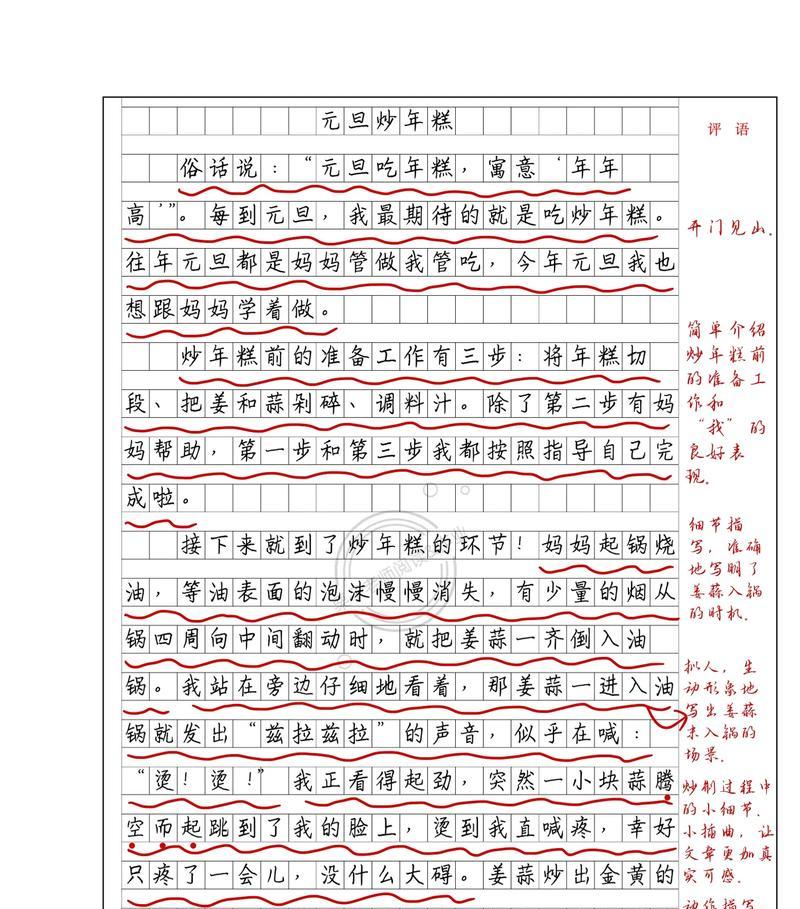 元旦炒年糕
俗话说：“元旦吃年糕，寓意‘年年
高’”。每到元旦，我最期待的就是吃炒年糕。
往年元旦都是妈妈管做我管吃，今年元旦我也
想跟妈妈学着做。
炒年糕前的准备工作有三步：将年糕切
段、把姜和蒜剁碎、调料汁。除了第二步有妈
妈帮助，第一步和第三步我都按照指导自己完
成啦。
接下来就到了炒年糕的环节！妈妈起锅烧
油，等油表面的泡沫慢慢消失，有少量的烟从
锅四周向中间翻动时，就把姜蒜一齐倒入油
锅。我站在旁边仔细地看着，那姜蒜一进入油
锅就发出“兹拉兹拉”的声音，似乎在喊：
“烫！烫！”我正看得起劲，突然一小块蒜腾
空而起跳到了我的脸上，烫到我直喊疼，幸好
只疼了一会儿，没什么大碍。姜蒜炒出金黄的
评语
开门见山.
简单介绍
炒年糕前
的准备工
作和
“我”的
良好表
现.
细节描
写，准确
地写明了
姜蒜入锅
的时机.
拟人，生
动形象地
写出姜蒜
末入锅的
场景.
炒制过程中
的小细节.
小插曲，让
文章更加真
实可感.
动作描写